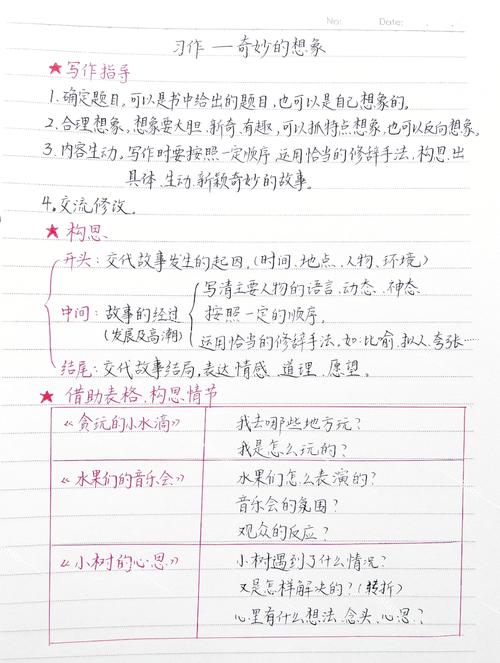 No:
Date:
习作 — 奇妙的想象
★写作指导
1.确定题目,可以是书中给出的题目,也可以是自己想象的。
2.合理想象,想象要大胆、新奇、有趣,可以抓特点想象,也可以反向想象。
3.内容生动,写作时要按照一定顺序,运用恰当的修辞手法,构思出
具体、生动、新颖奇妙的故事。
4.交流修改。
★ 构思
开头:交代故事发生的起因,(时间、地点、人物、环境)
写清主要人物的语言、动态、神态
中间:故事的经过
按照一定的顺序,
(发展及高潮)
运用恰当的修辞手法,如:比喻、拟人、夸张……
结尾:交代故事结局,表达情感、道理、愿望。
★ 借助表格,构思情节
《贪玩的小水滴》
我去哪些地方玩?
我是怎么玩的?
《水果们的音乐会》
水果们怎么表演的?
音乐会的氛围?
观众的反应?
《小树的心思》
小树遇到了什么情况?
又是怎样解决的?(转折)
心里有什么想法、念头、心思?